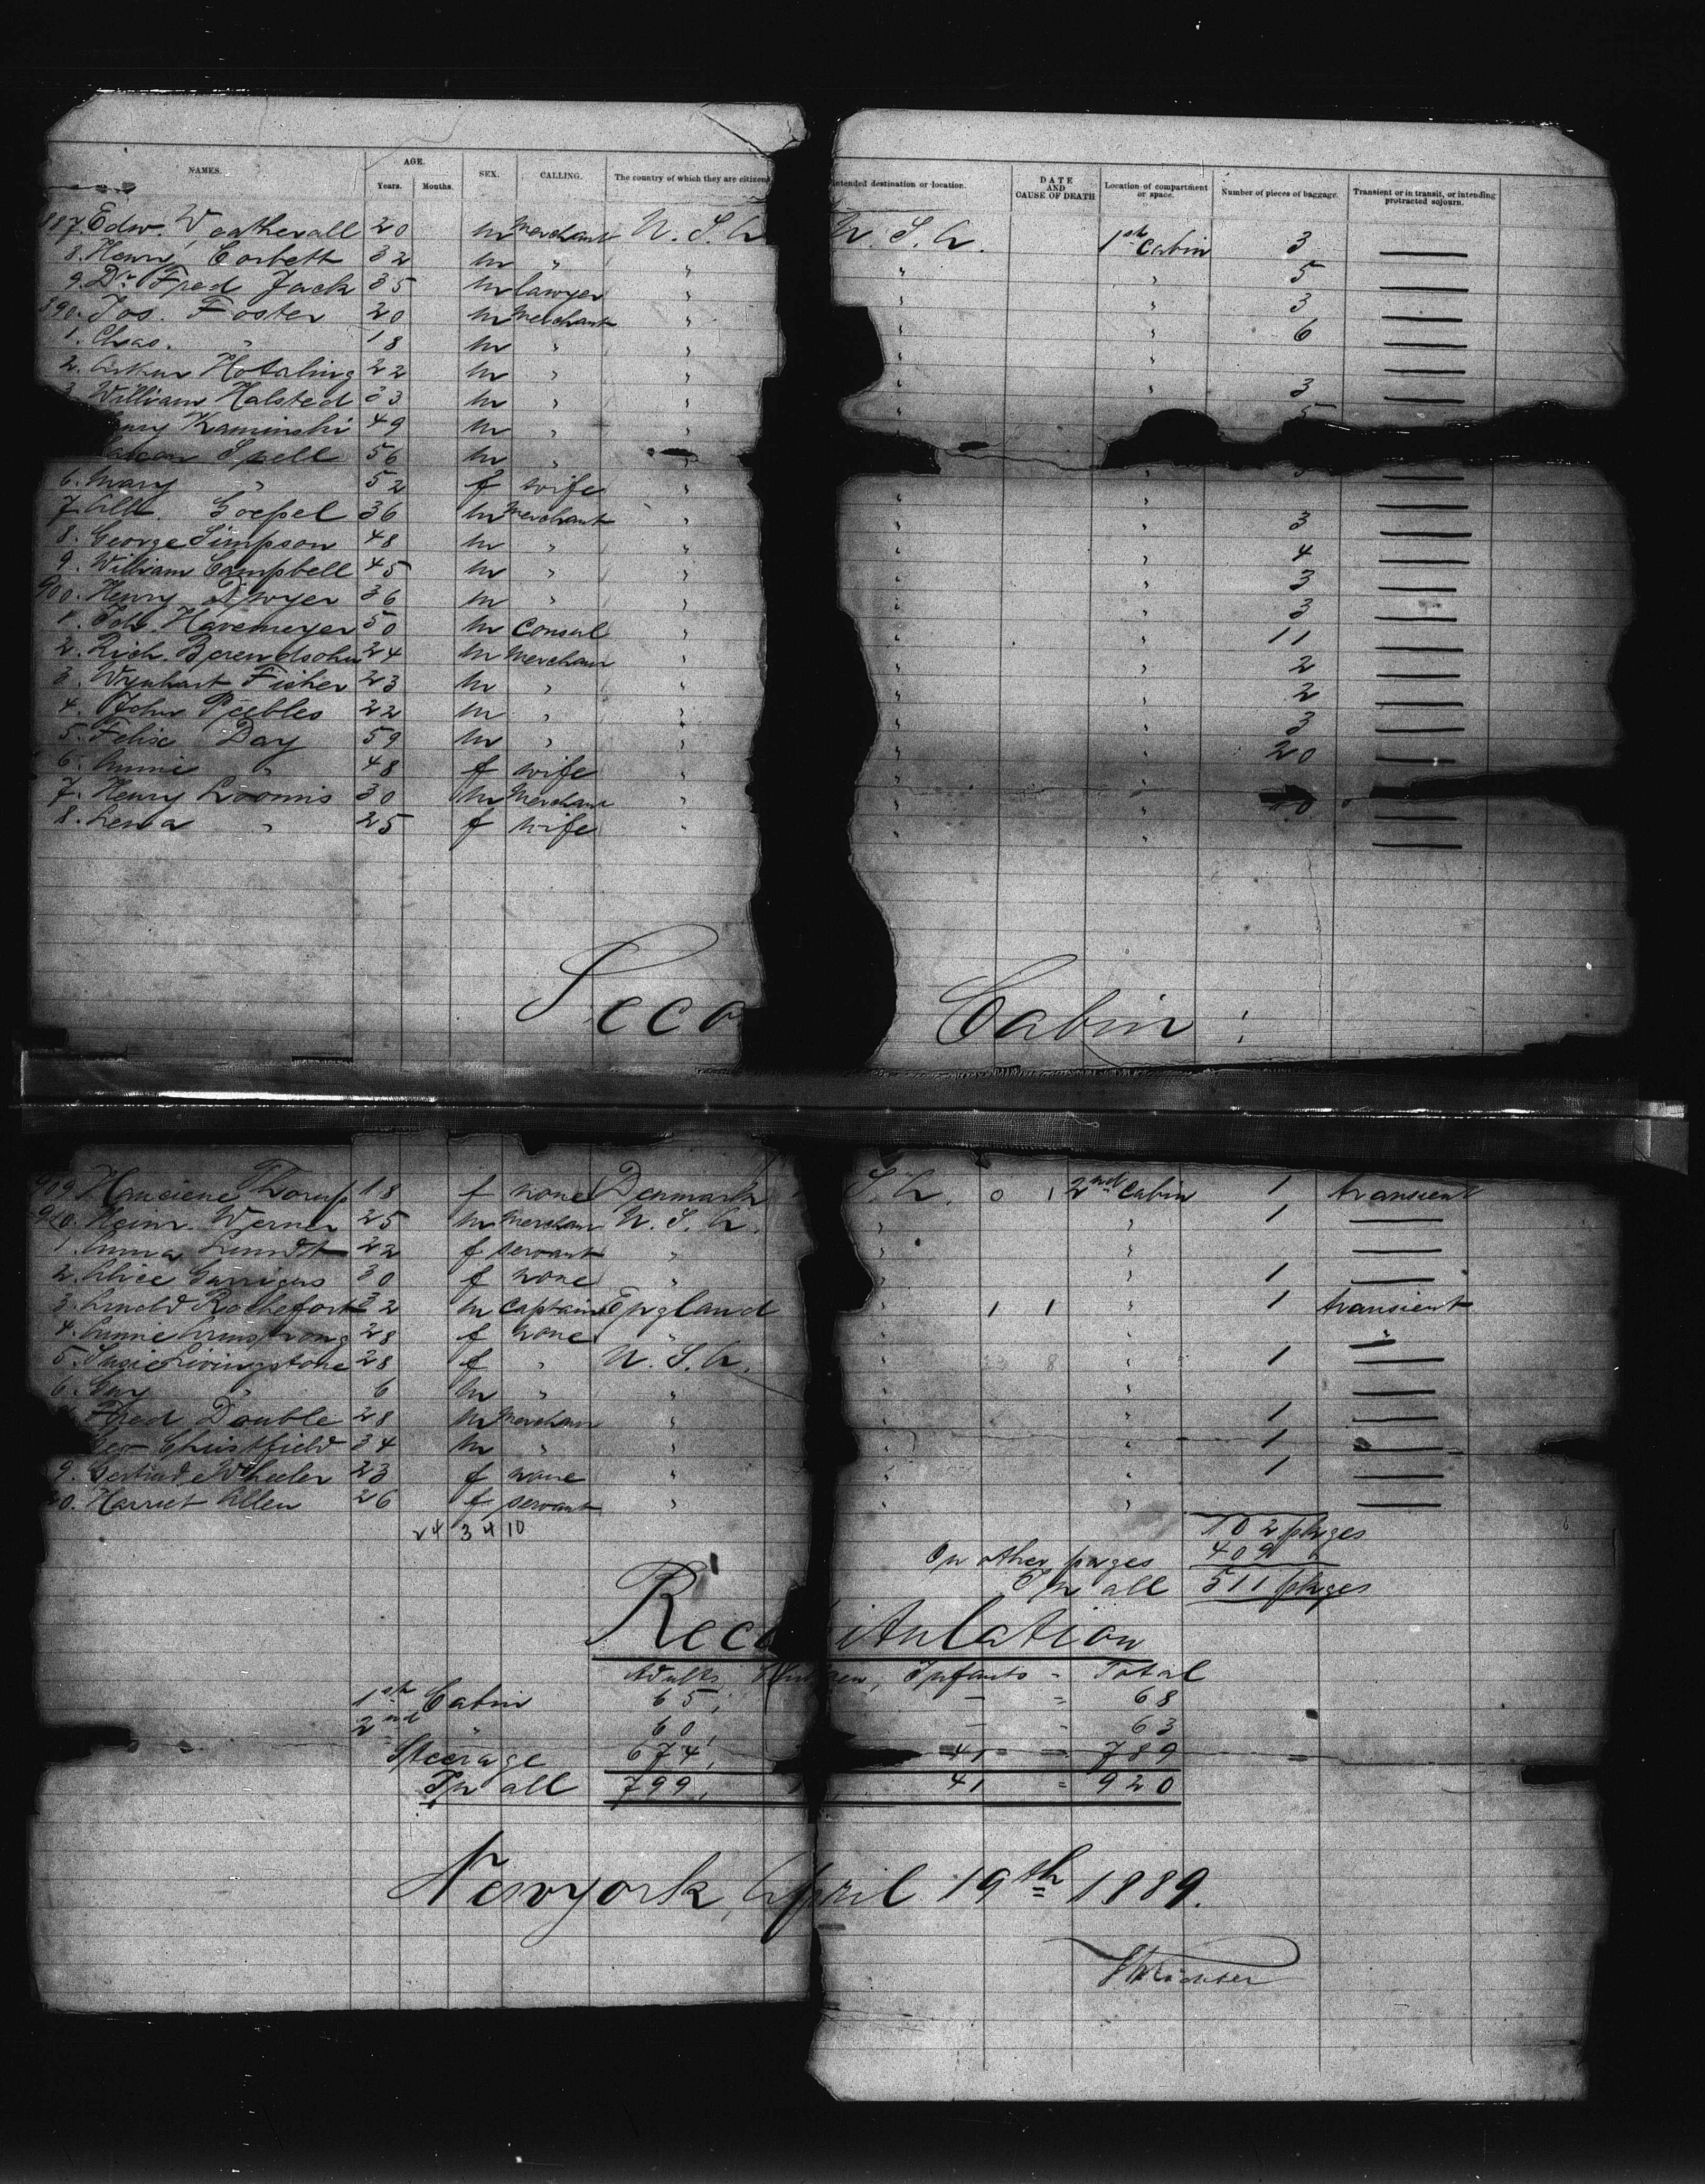 NAMES. AGE. Years. Months. SEX. CALLING. The country of which they are citizens Intended destination or location. DATE AND CAUSE OF DEATH Location of compartment or space. Number of pieces of baggage. Transient or in transit, or intending protracted sojourn.
887. Edw. Weatherall 20 m Merchant U. S. A U. S. A. 1st Cabin 3 —
8. Henry Corbett 32 m " " " " 5 —
9. Dr Fred Jack 35 m lawyer " " " 3 —
890. Jos. Foster 20 m Merchant " " " 6 —
1. Chas. " 18 m " " " " —
2. Hotaling 22 m " " " " 3 —
3. William Halsted 33 m " " " " 5
Kaminski 49 m " "
Spell 56 m " "
6. Mary " 52 f wife " " " —
7. Goepel 36 m Merchant " " " 3 —
8. George Simpson 48 m " " " " 4 —
9. William Campbell 45 m " " " " 3 —
900. Henry Dwyer 36 m " " " " 3 —
1. Havemeyer 50 m Consul " " " 11 —
2. Rich. Berendsohn 24 m Merchan " " " 2 —
3. Wynhart Fisher 23 m " " " " 2 —
4. John Peebles 22 m " " " " 3 —
5. Felix Day 59 m " " " " 20 —
6. Annie " 48 f wife " " "
7. Henry Loomis 30 m Merchan " " " —
8. Lena " 25 f wife " " " —
Seco Cabin :
909. Thorup 18 f none Denmark S. A. 0 1 2nd Cabin 1 transient
910. Heinr. Werner 25 m Merchan U. S. A. " " 1 —
1. Anna Lundt 22 f servant " " " —
2. Alice Garrigus 30 f none " " " 1 —
3. Arnold Rochefort 32 m Captain England " 1 1 " 1 transient
4. Annie Armstrong 28 f none " " " "
5. Susie Livingstone 28 f " U. S. A. " " 1 —
6. Guy " 6 m " " " " —
Fred Double 28 m Merchan " " " 1 —
Geo Christfield 34 m " " " " 1 —
9. Gertrude Wheeler 23 f none " " " 1 —
20. Harriet Allen 26 f servant " " " —
24 3 4 10
102 pkges
On other pages 409 "
In all 511 pkges
Reca itulation
Adults, Children, Infants = Total
1st Cabin 65, — = 68
2nd " 60, — = 63
Steerage 674, 41 = 789
In all 799, 41 = 920
Newyork, April 19th 1889.